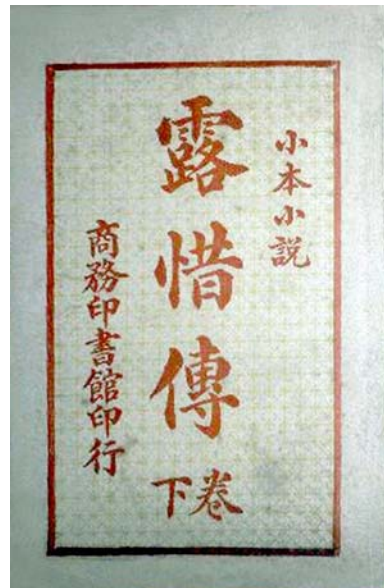 小本小説
露惜傳
卷下
商務印書館印行